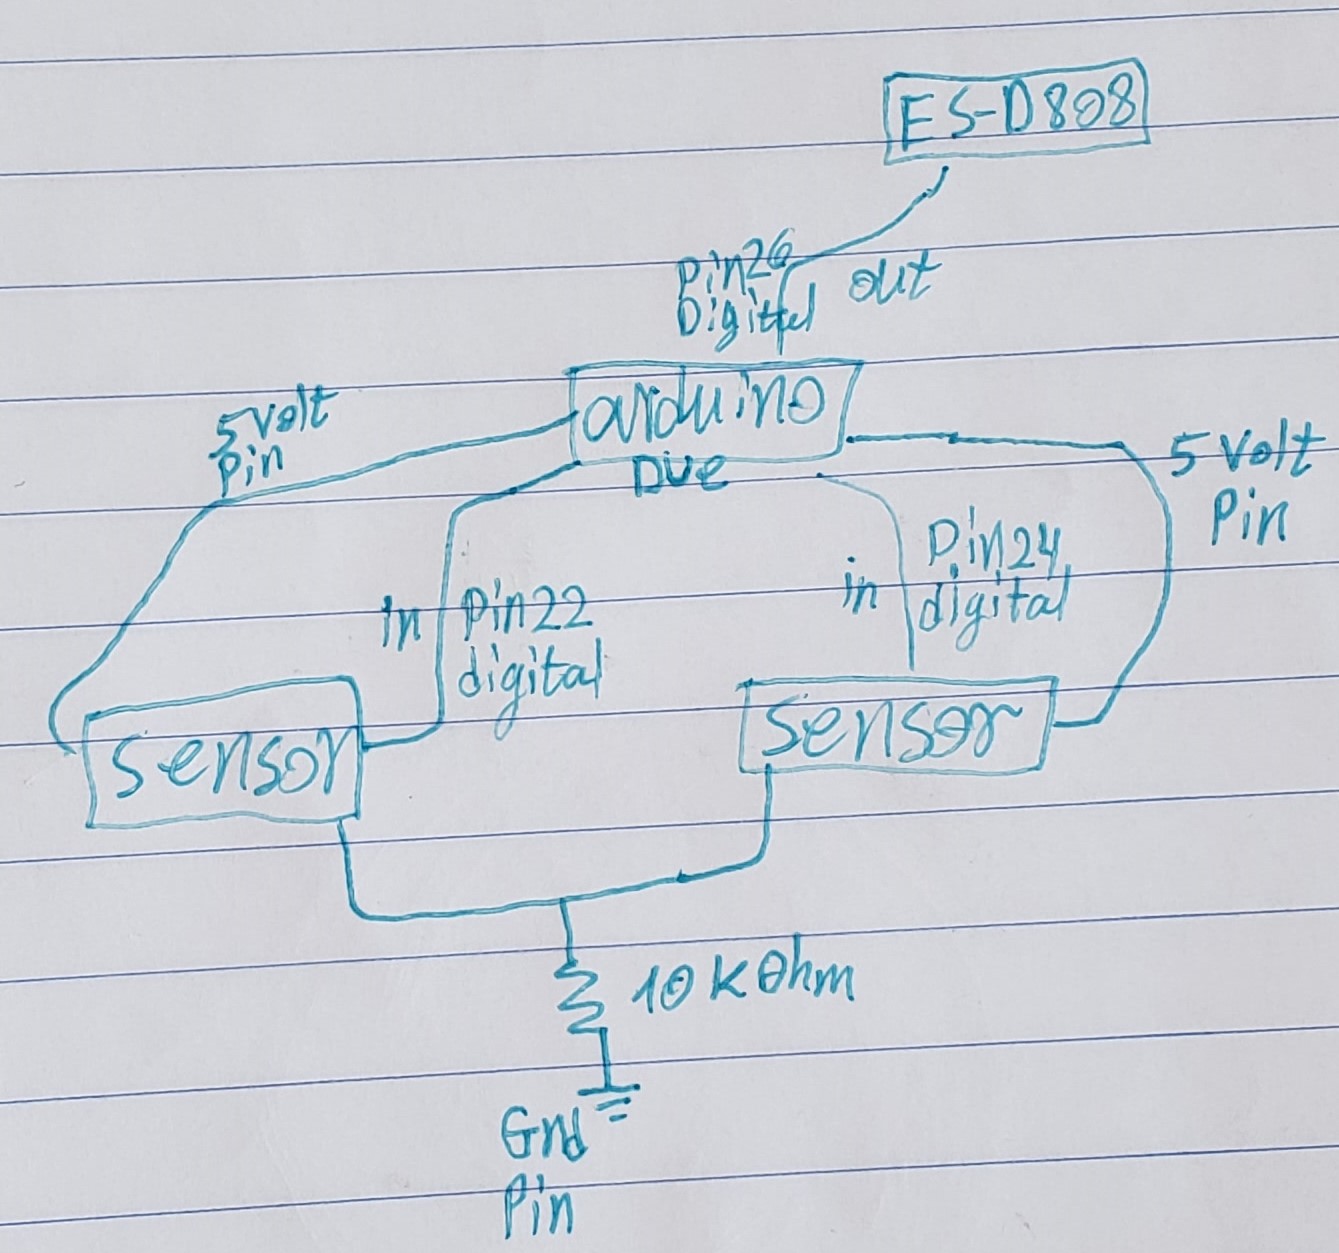 ES-D808
Pin26
Digital
out
arduino
Due
5 volt
pin
5 Volt
Pin
in
Pin22
digital
in
Pin24
digital
sensor
sensor
10 k Ohm
Gnd
Pin